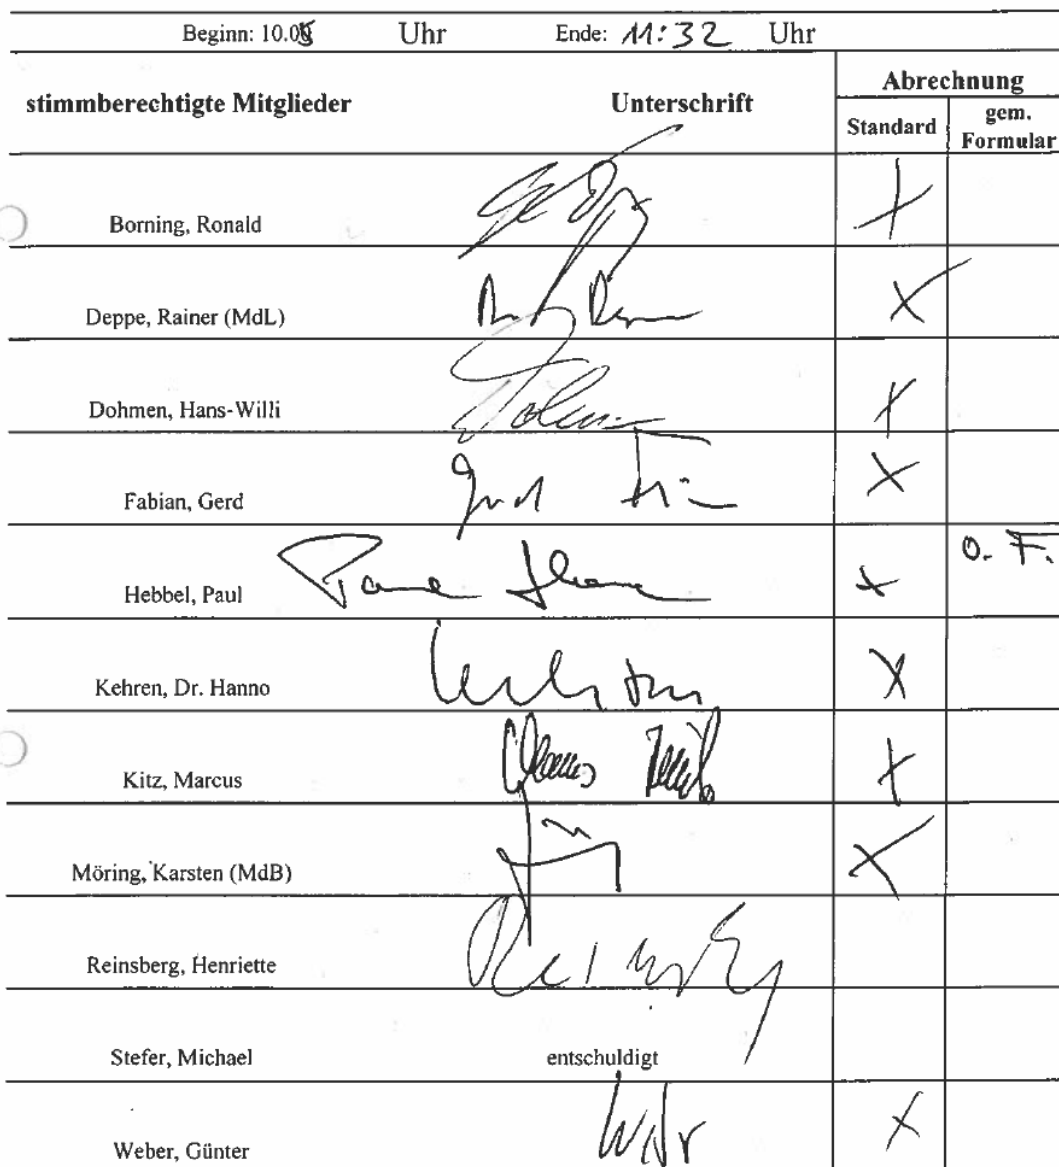 Beginn: 10.05 Uhr Ende: 11:32 Uhr
stimmberechtigte Mitglieder Unterschrift Abrechnung
Standard gem. Formular
Borning, Ronald X
Deppe, Rainer (MdL) X
Dohmen, Hans-Willi X
Fabian, Gerd X
Hebbel, Paul X O. F.
Kehren, Dr. Hanno X
Kitz, Marcus X
Möring, Karsten (MdB) X
Reinsberg, Henriette
Stefer, Michael entschuldigt
Weber, Günter X